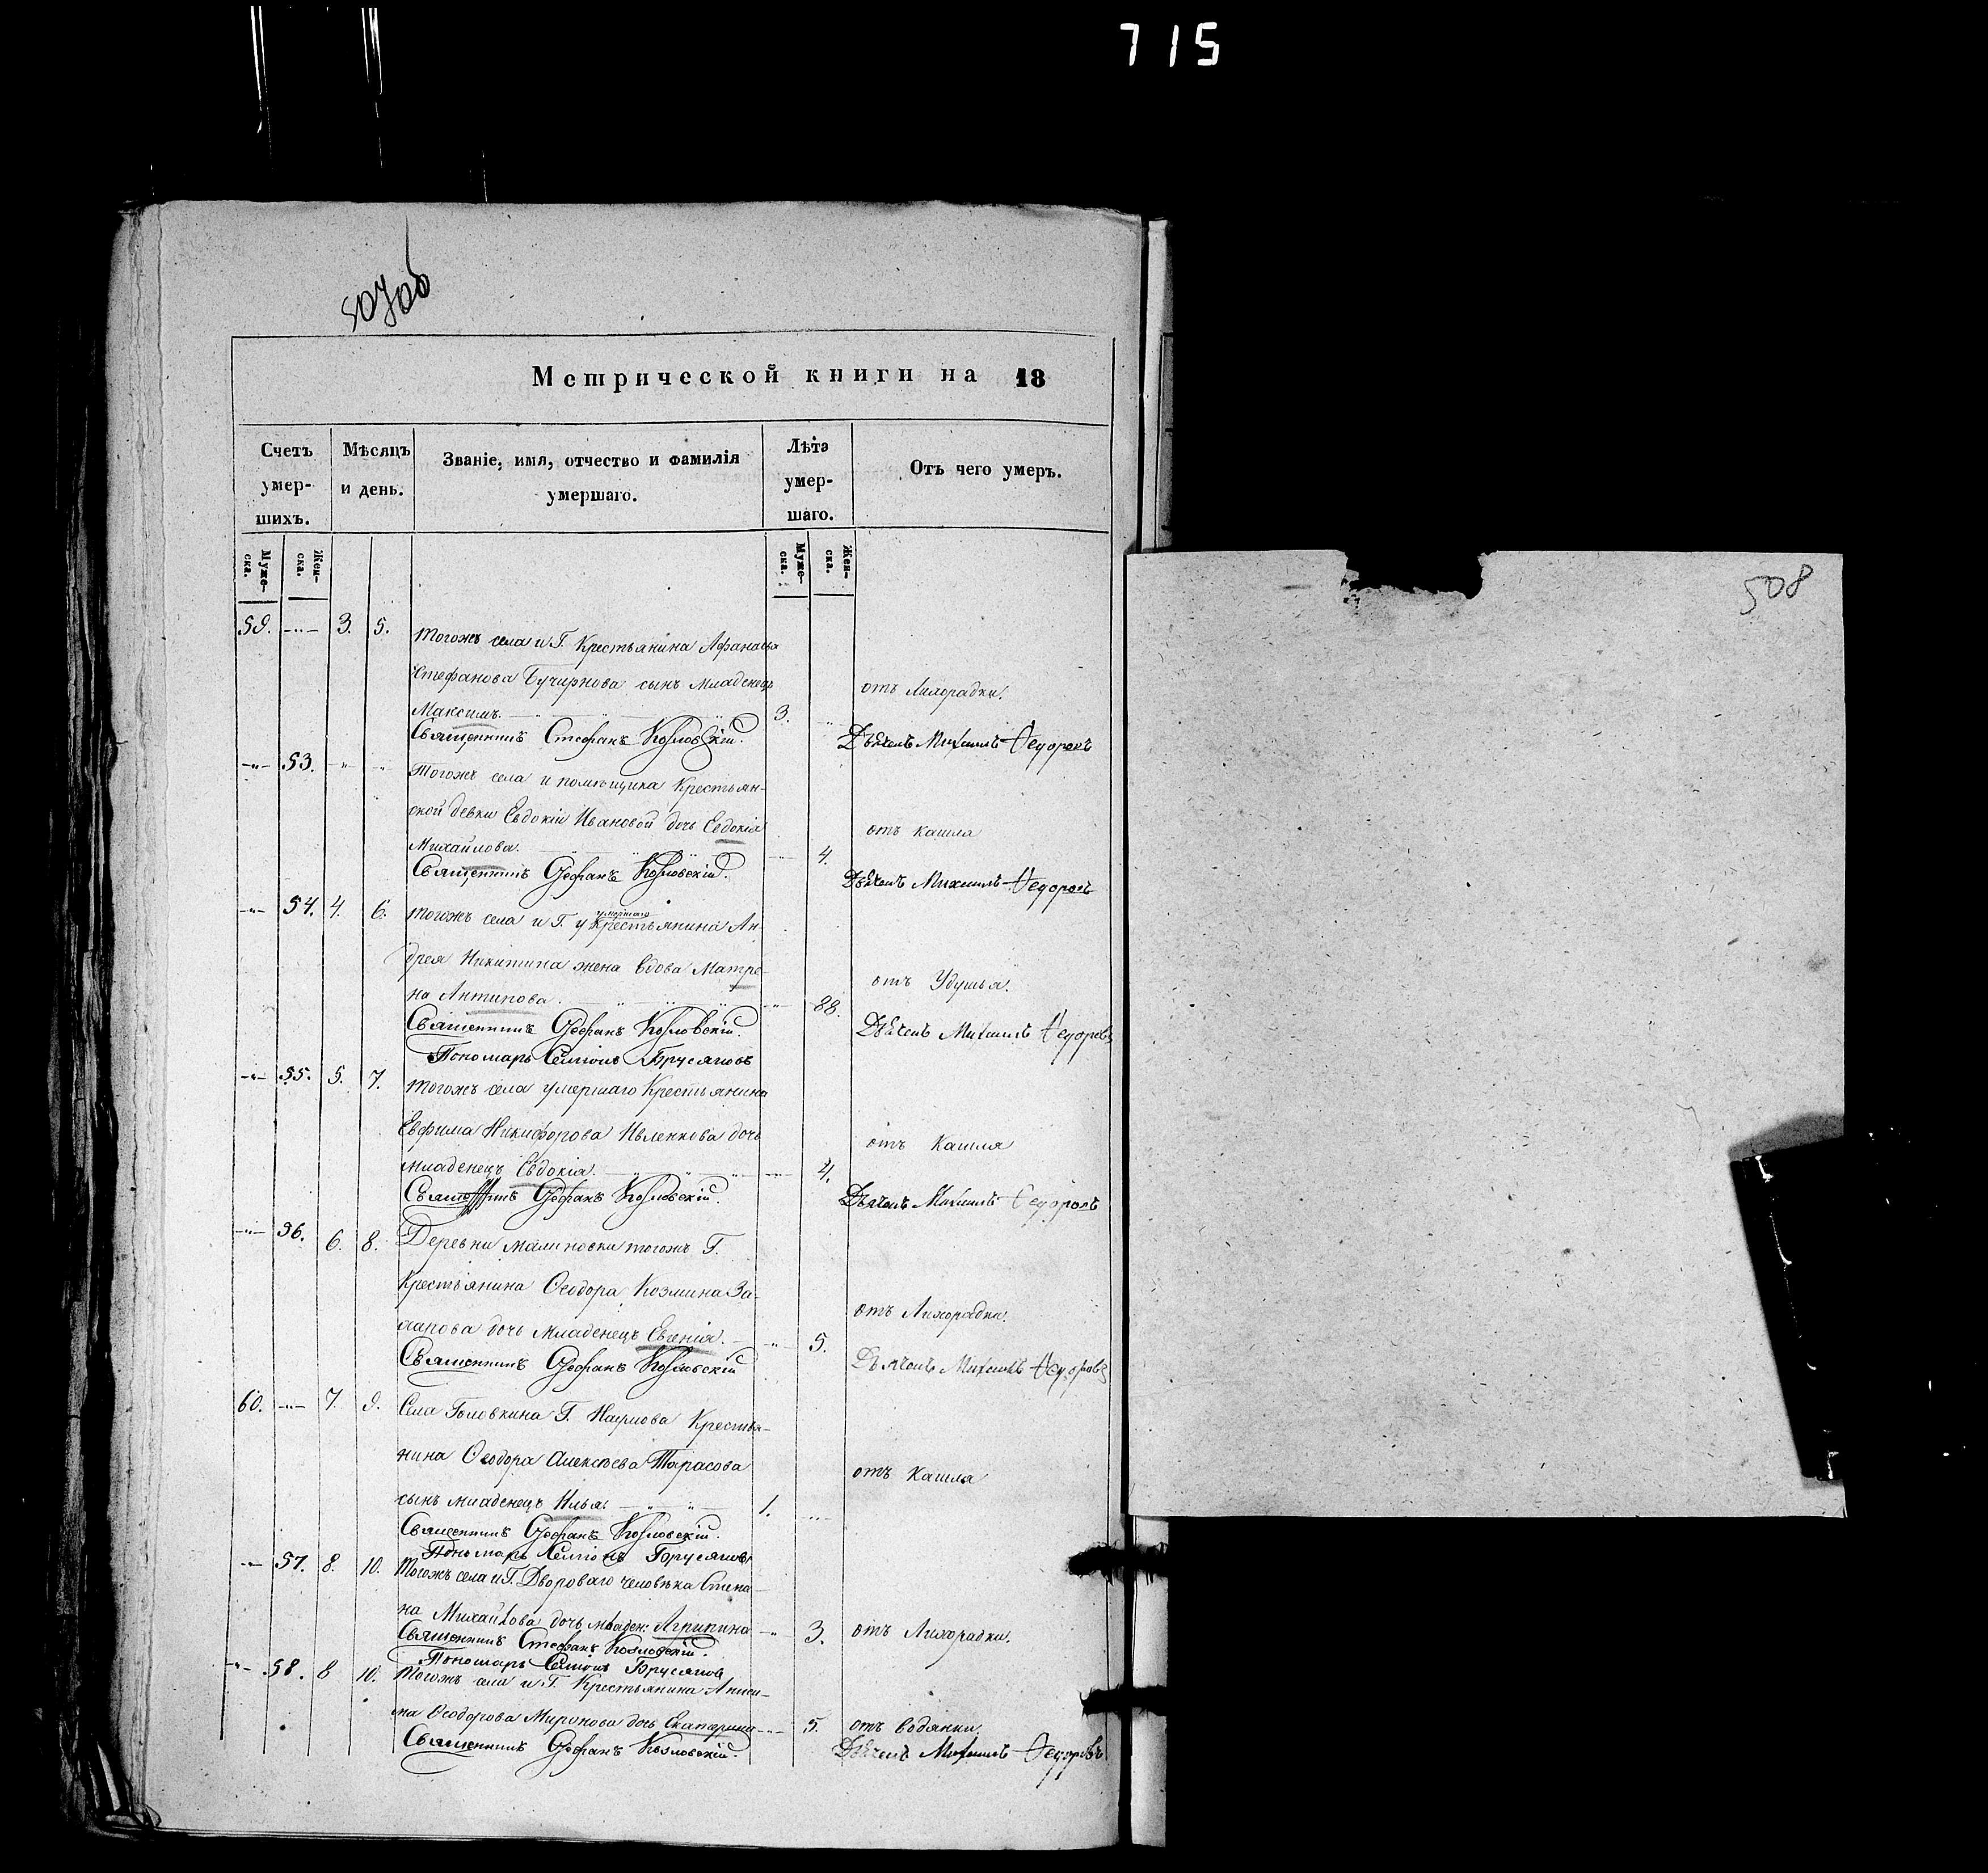 715
507об
508
Метрической книги на 18
Счетъ умер-шихъ.
Мѣсяцъ и день.
Званіе, имя, отчество и фамилія умершаго.
Лѣта умер-шаго.
Отъ чего умеръ.
Муже-ска.
Жен-ска.
Муже-ска.
Жен-ска.
59. -"- 3. 5. Тогожъ села и Г. Крестьянина Афанасья
Стефанова Бучирнова сынъ Младенецъ отъ Лихорадки.
Максимъ. 3.
Священникъ Стефанъ Козловскій. Дьячекъ Михаилъ Ѳедоровъ
-"- 53. -"- -"- Тогожъ села и помѣщика Крестьян-
ской девки Евдокіи Ивановой дочь Евдокія отъ кашля
Михайлова. 4.
Священникъ Стефанъ Козловскій. Дьячекъ Михаилъ Ѳедоровъ
-"- 54. 4. 6. Тогожъ села и Г. умершаго Крестьянина Ан-
дрея Никитина жена вдова Матре- отъ Удушья.
на Антипова. 88.
Священникъ Стефанъ Козловскій. Дьячекъ Михаилъ Ѳедоровъ
Пономарь Симіонъ Брусяновъ
-"- 55. 5. 7. Тогожъ села умершаго Крестьянина
Евфима Никифорова Ивленкова дочь отъ Кашля
младенецъ Евдокія. 4.
Стефанъ Козловскій. Дьячекъ Михаилъ Ѳедоровъ
-"- 56. 6. 8. Деревни Малиновки тогожъ Г.
Крестьянина Ѳеодора Козмина За- отъ Лихорадки.
дочь Младенецъ Евгенія. 5.
Священникъ Стефанъ Козловскій Дьячекъ Михаилъ Ѳедоровъ
60. -"- 7. 9. Села Головкина Г. Наумова Крестья-
нина Ѳеодора Алексѣева Тарасова отъ Кашля
сынъ младенецъ Илья. 1.
Священникъ Стефанъ Козловскій.
Пономарь Симіонъ Брусяновъ
-"- 57. 8. 10. Тогожъ села и Г. Двороваго человѣка Степа-
на Михайлова дочь младен: Агрипина 3. отъ Лихорадки.
Священникъ Стефанъ Козловскій.
Пономарь Симіонъ Брусяновъ
-"- 58. 8 10. Тогожъ села и Г. Крестьянина Аниси-
ма Ѳеодорова Миронова дочь Екатерина 5. отъ водянки.
Священникъ Стефанъ Козловскій. Дьячекъ Михаилъ Ѳедоровъ